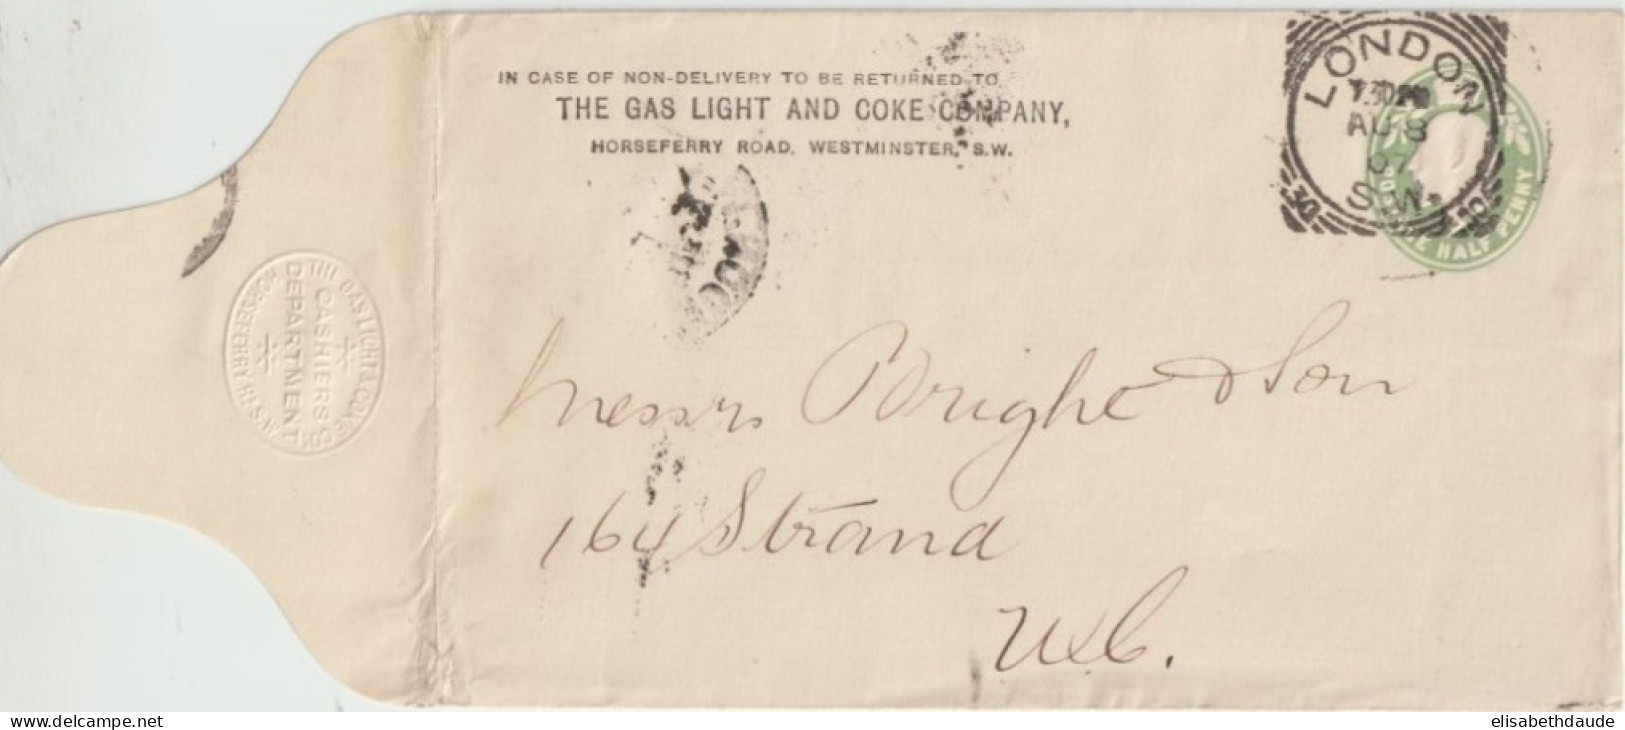 IN CASE OF NON-DELIVERY TO BE RETURNED TO
THE GAS LIGHT AND COKE COMPANY,
HORSEFERRY ROAD, WESTMINSTER, S.W.
LONDON
7.30PM
AU 8
07
S.W.
30 30
ONE HALF PENNY
THE GAS LIGHT & COKE CO:
CASHIERS
DEPARTMENT
HORSEFERRY RD. S.W.
Messrs Bright & Son
164 Strand
W.C.
www.delcampe.net
elisabethdaude